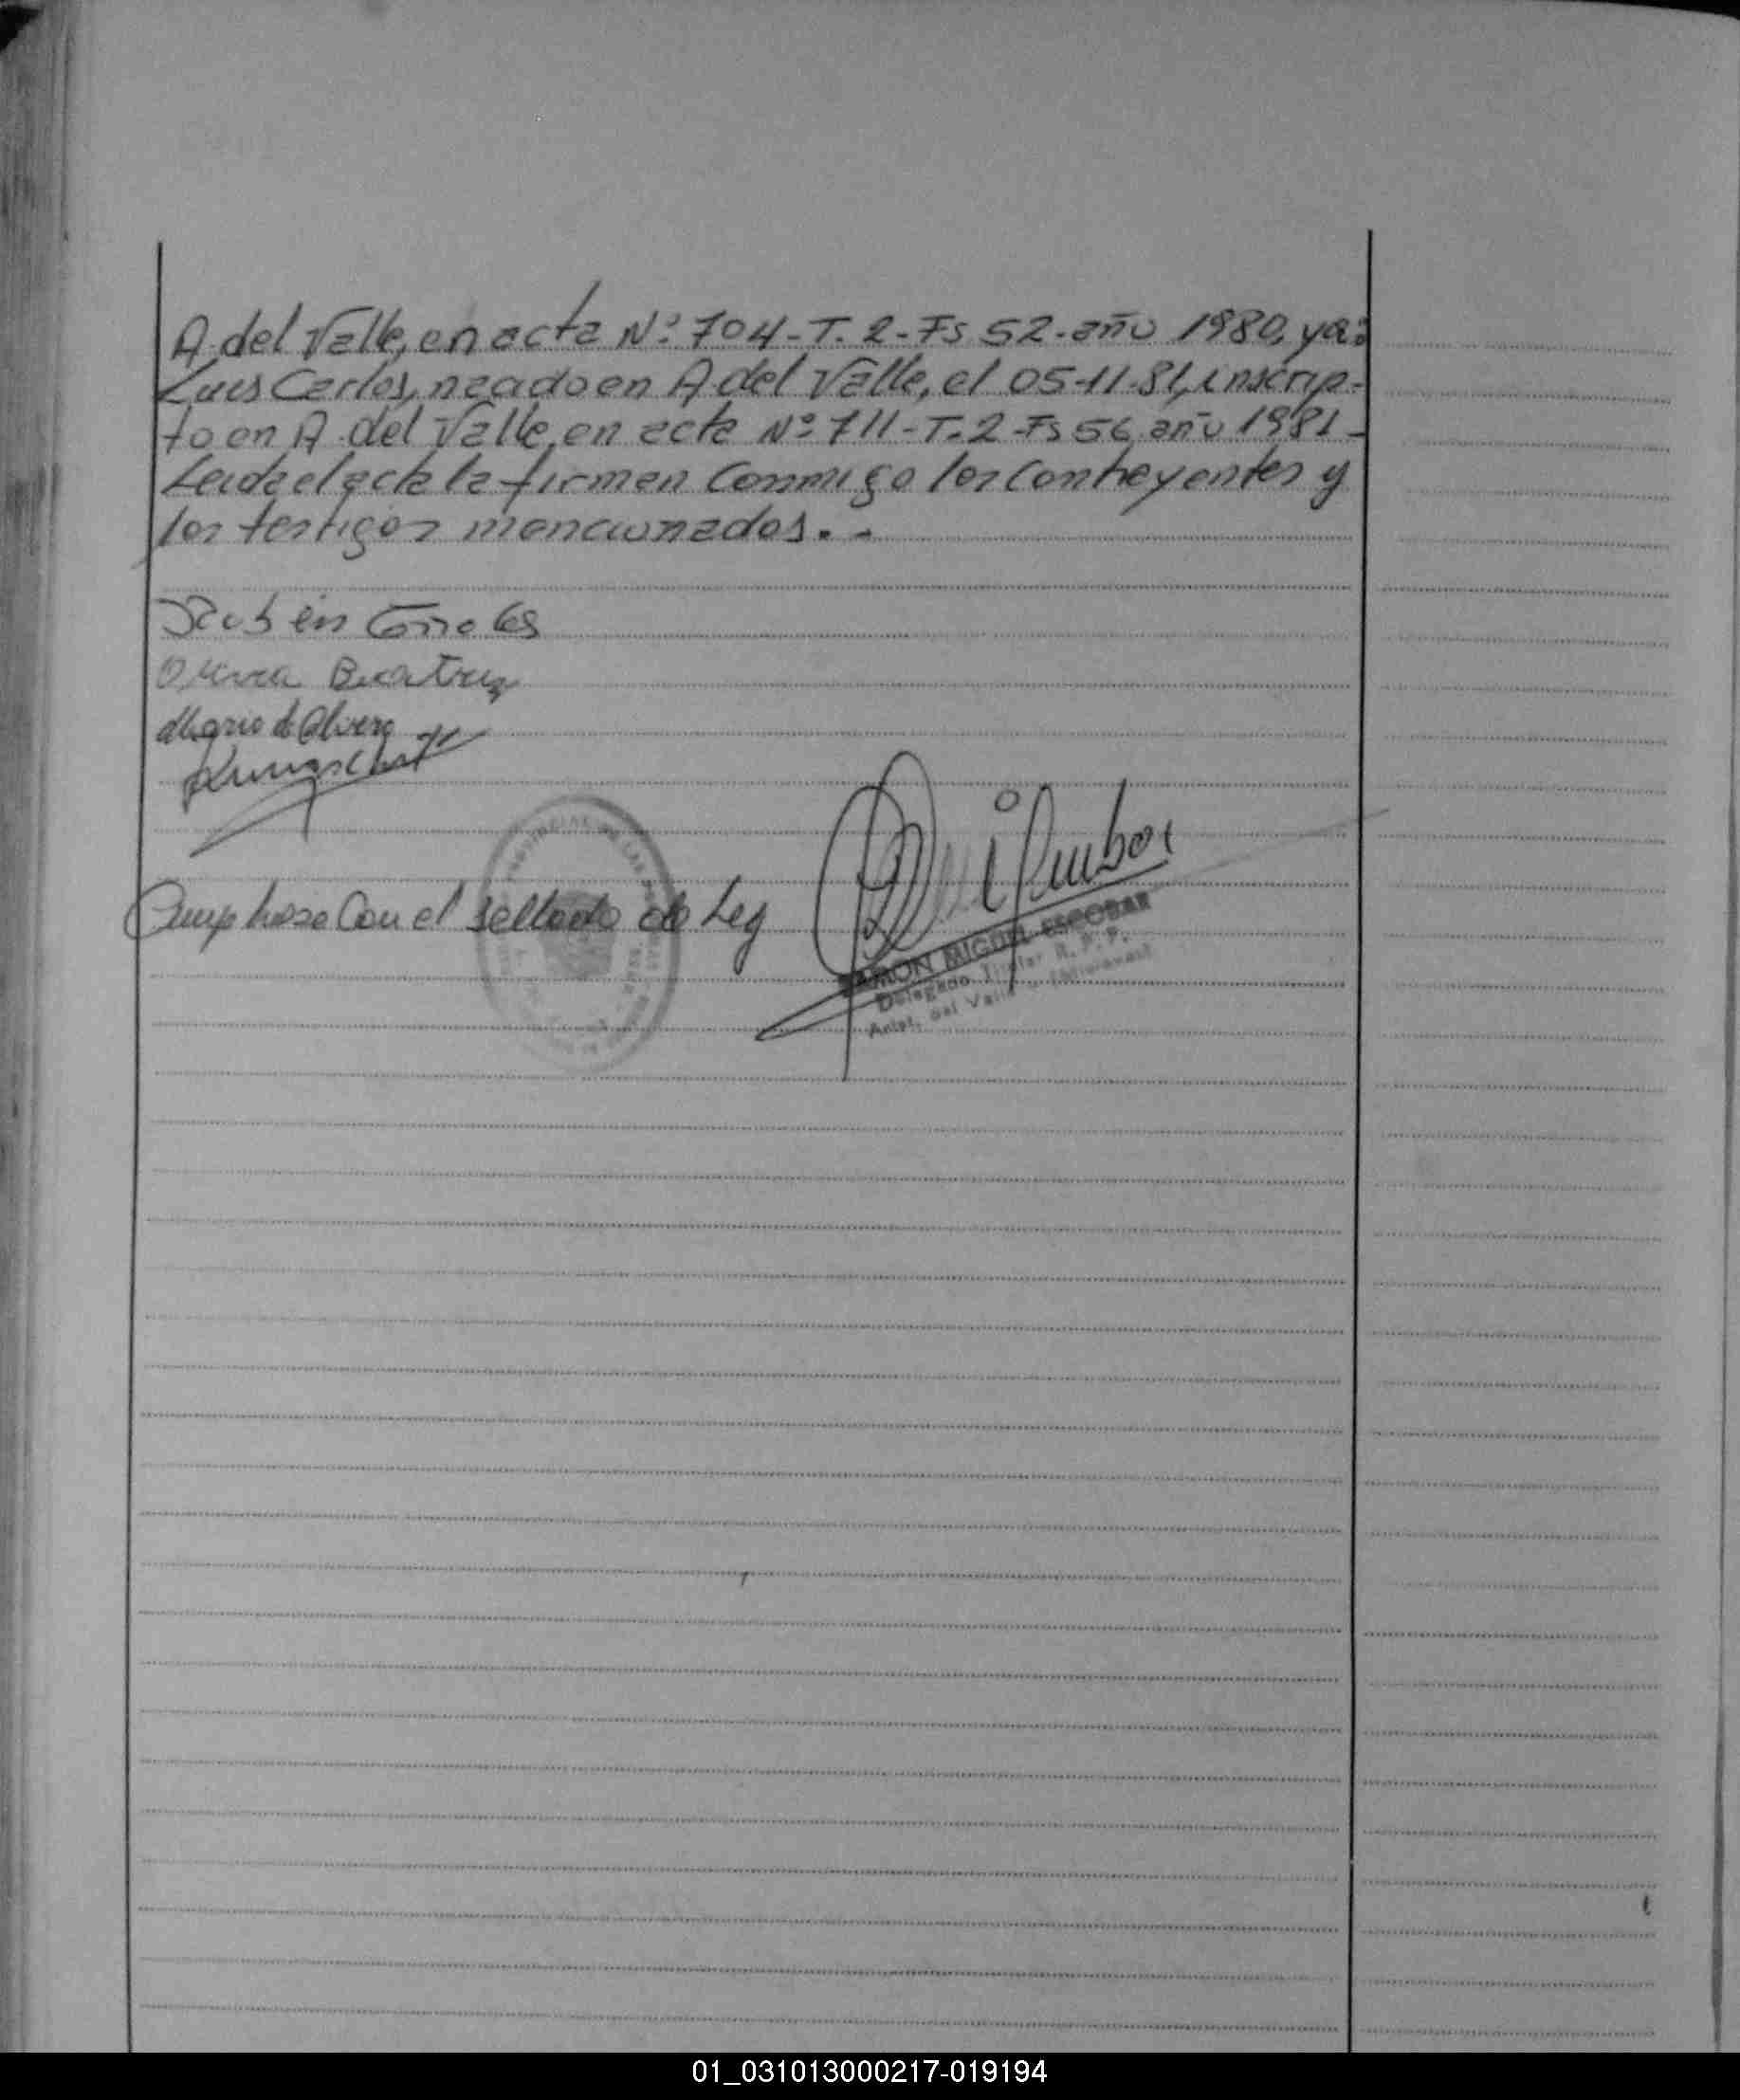 A. del Valle, en acta Nº 704-T. 2-Fs 52-año 1980, y a:
Luis Carlos, nacido en A. del Valle, el 05-11-81, inscrip-
to en A. del Valle, en acta Nº 711-T. 2-Fs 56 año 1981-
Leida el acta la firman conmigo los contrayentes y
los testigos mencionados. -
Rubén
Beatriz
Mario de Olivera
Cumplase Con el sellado de Ley
RAMON MIGUEL ESCOBAR
Delegado Titular R. P. P.
Aript. del Valle (Misiones)
01_031013000217-019194